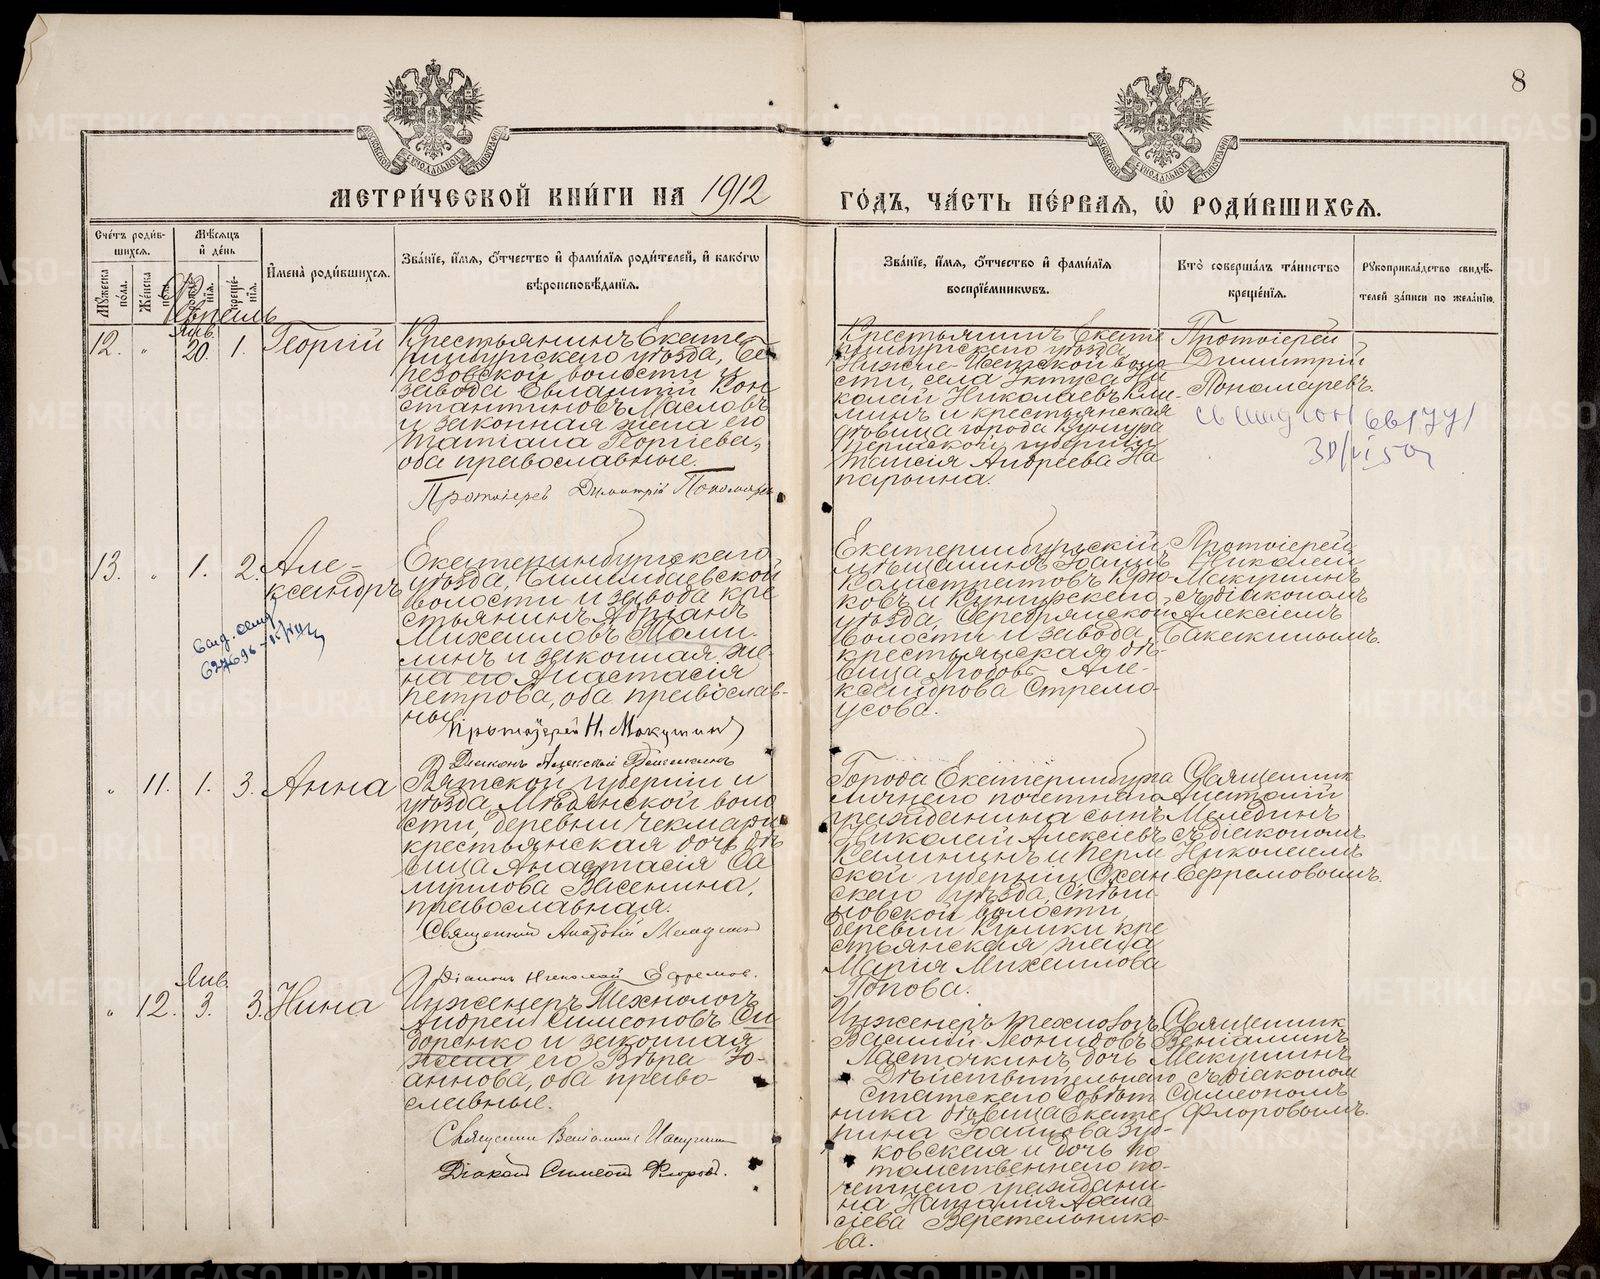 8
МЕТРИ́ЧЕСКОЙ КНИ́ГИ НА 1912 ГО́ДЪ, ЧА́СТЬ ПЕ́РВАЯ, Ѡ РОДИ́ВШИХСЯ.
Сче́тъ роди́в-
шихся.
Мѣ́сяцъ
и҆ де́нь
Мꙋ́жеска
по́ла.
Же́нска
креще́-
нїя.
И҆мена̀ роди́вшихся.
Зва́нїе, и҆́мя, ѻ҆́тчество и҆ фами́лїя роди́телей, и҆ како́гѡ
вѣроисповѣ́данїя.
Зва́нїе, и҆́мя, ѻ҆́тчество и҆ фами́лїя
воспрїе́мниковъ.
Кто̀ соверша́лъ та́инство
креще́нїя.
Рꙋкоприкла́дство свидѣ́-
телей за́писи по жела́нїю.
12. " Янв. 20. 1. Георгій
Крестьянинъ Екате-
ринбургскаго уѣзда, Бе-
резовской волости и
завода Евлампій Кон
стантиновъ Масловъ
и законная жена его
Татіана Георгіева,
оба православные.
Протоіерей Димитрій Пономаревъ
Крестьянинъ Екате
ринбургскаго уѣзда
Нижне-Исетской воло
сти, села Уктуса Ни
колай Николаевъ
и крестьянская
дѣвица города Кунгура
Пермской губерніи
Таисія Андреева На
парьина.
Протоіерей
Димитрій
Пономаревъ.
13. " 1. 2. Але-
ксандръ
Екатеринбургскаго
уѣзда, Билимбаевской
волости и завода кре
стьянинъ
Михаиловъ
и законная же-
на его Анастасія
Петрова, оба православ-
ные.
Протоіерей Н. Макушинъ
Діаконъ Алексій
Екатеринбургскій
мѣщанинъ Іоаннъ
Калистратовъ Крю-
ковъ и Кунгурскаго
уѣзда, Серебрянской
волости и завода
крестьянская дѣ-
вица Любовь Але-
ксандрова Стремо-
усова.
Протоіерей
Николай
Макушинъ
съ діакономъ
Алексіемъ
" 11. 1. 3. Анна
Вятской губерніи и
уѣзда, Медянской воло
сти, деревни Чекмари
крестьянская дочь дѣ
вица Анастасія Са
муилова Васенина,
православная.
Священникъ Анатолій Мелединъ
Діаконъ Николай Ефремов.
Города Екатеринбурга
личнаго почетнаго
гражданина сынъ
Николай Алексіевъ
Калининъ и Перм
ской губерніи Охан
скаго уѣзда,
волости,
деревни Кулики кре
стьянская жена
Марія Михаилова
Попова.
Священник
Анатолій
Мелединъ
съ діакономъ
Николаемъ
Ефремовымъ.
" 12. Янв. 3. 3. Нина
Инженеръ Технологъ
Андрей Симеоновъ Си
доренко и законная
жена его Вѣра Іо-
аннова, оба право-
славные.
Священникъ Веніаминъ Макушинъ
Діакон Симеон Флоров.
Инженеръ технологъ
Василій Леонидовъ
Ласточкинъ, дочь
Дѣйствительнаго
статскаго совѣт
ника дѣвица Екате
рина Іоаннова
и дочь по
томственнаго по-
четнаго граждани
на Наталія Афана
сіева Веретельнико-
ва.
Священник
Веніаминъ
Макушинъ
съ діакономъ
Симеономъ
Флоровымъ.
METRIKI.GASO-URAL.RU